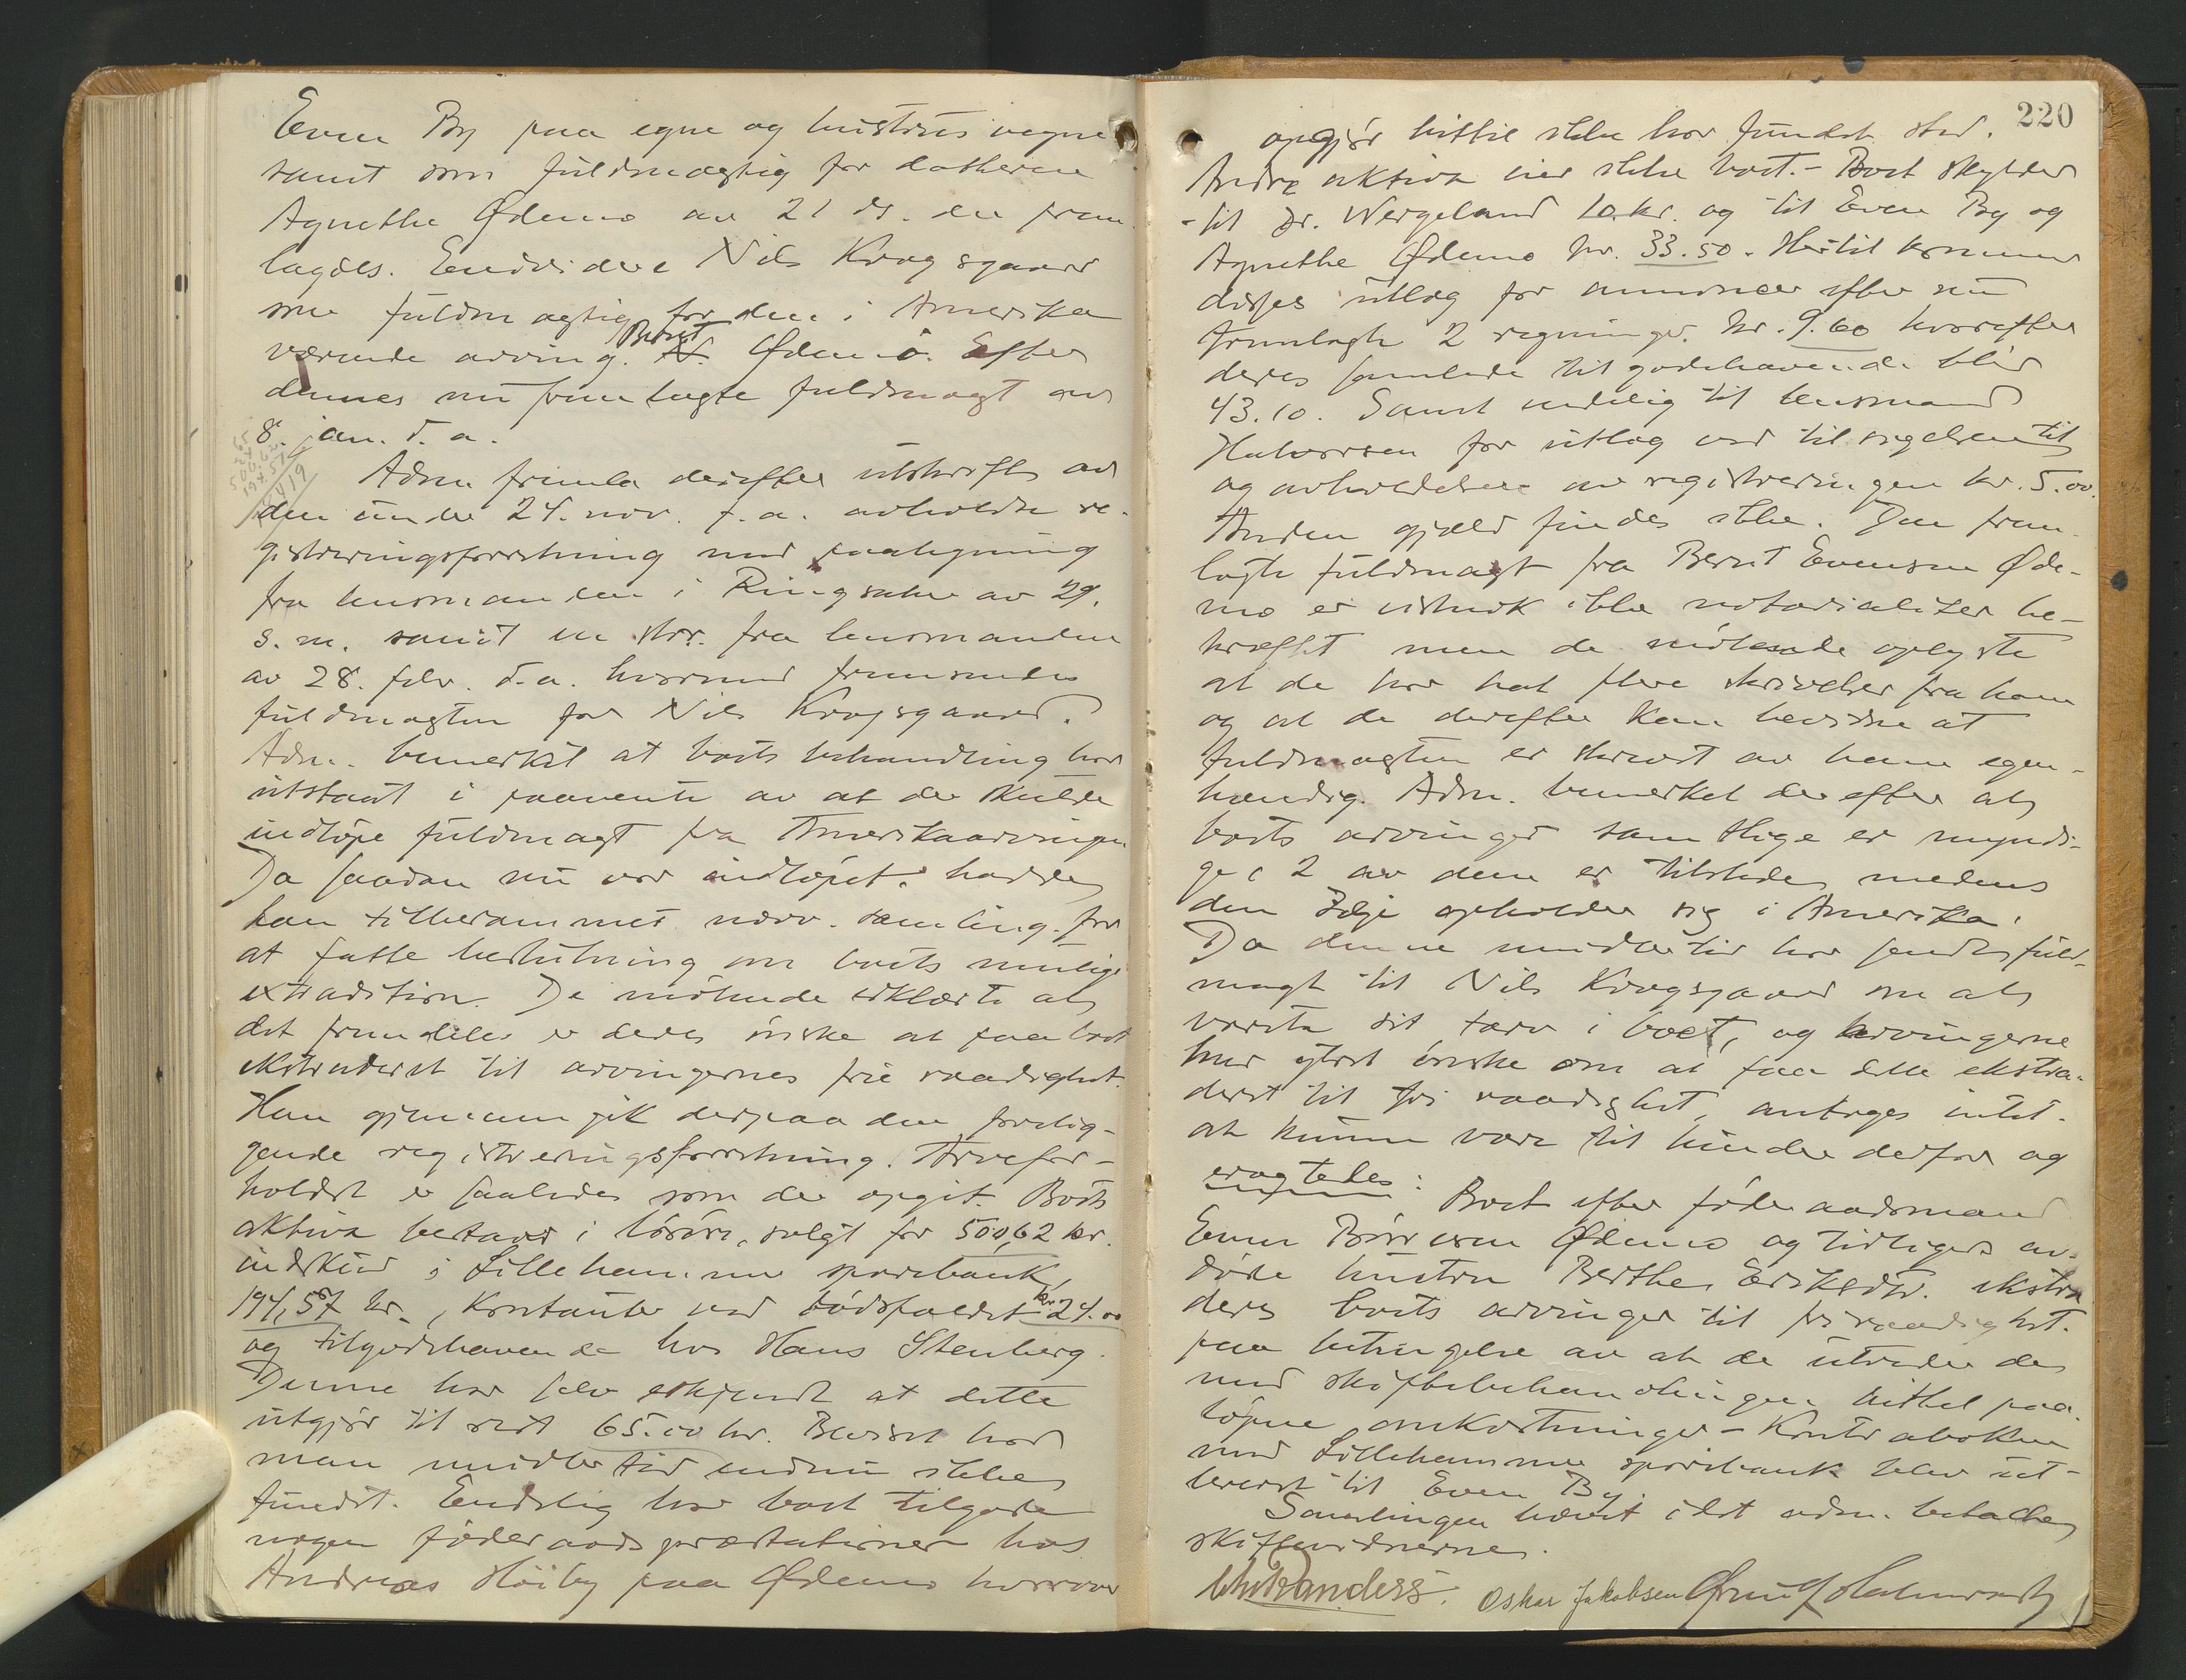 Even By paa egne og hustrus vegne
samt som fuldmægtig for datteren
Agnethe Ødemo av 21 ds. der frem-
lagdes. Endvidere Nils Krogsgaard
som fuldmægtig for den i Amerika
værende arving. Bernt Ødemo. Efter
dennes nu fremlagte fuldmagt av
8. jan. d. a.
Adm. fremla derefter utskrift av
den under 24. nov. f. a. avholdte re-
gistreringsforretning med paategning
fra lensmanden i Ringsaker av 29.
s. m. samt en skr. fra lensmanden
av 28. febr. d. a. hvormed fremsendes
fuldmagten for Nils Krogsgaard.
Adm. bemerket at boets behandling har
utstaat i paavente av at der skulde
indløpe fuldmagt fra Amerikaarvingen.
Da saadan nu var indløpet. hadde
han tilberammet nærv. samling. for
at fatte beslutning om boets mulige
extradition. De møtende erklærte at
det fremdeles er deres ønske at faa boet
ekstraderet til arvingernes frie raadighet.
Man gjennemgik derpaa den forelig-
gende registreringsforretning. Arvefor-
holdet er saaledes som der opgit. Boets
aktiva bestaar i løsøre, solgt for 500,62 kr.
indskud i Lillehammer sparebank,
194,57 kr., kontanter ved dødsfaldet kr 24.00
og tilgodehavende hos Hans Stenberg.
Denne har selv erkjendt at dette
utgjør til rest 65.00 kr. Beviset har
man imidlertid endnu ikke
fundet. Endelig har boet tilgode
nogen føderaadsprestationer hos
Andreas Høiby paa Ødemo hvorover
220
opgjør hittil ikke har fundet sted.
Andre aktiva eier ikke boet. - Boet skylder
til Dr. Wergeland 10 kr. og til Even By og
Agnethe Ødemo kr. 33.50. Hertil kommer
disses utlæg for annoncer efter nu
fremlagte 2 regninger. kr. 9.60 hvorefter
deres samlede tilgodehavende blir
43.10. Samt endelig til lensmand
Halvorsen for utlæg ved tilsigelsen til
og avholdelsen av registreringen kr. 5.00.
Anden gjæld findes ikke. Den frem-
lagte fuldmagt fra Bernt Evensen Øde-
mo er vistnok ikke notarialiter be-
kræftet men de møtende oplyste
at de har hat flere skrivelser fra ham
og at de derefter kan bevidne at
fuldmagten er skrevet av ham egen-
hændig. Adm. bemerket derefter at
boets arvinger samtlige er myndi-
ge, 2 av dem er tilstede, medens
den 3dje opholder sig i Amerika.
Da denne imidlertid har sendt fuld-
magt til Nils Krogsgaard om at
vareta sit tarv i boet, og arvingerne
har ytret ønske om at faa dette ekstra-
deret til fri raadighet, antages intet
at kunne være til hinder derfor og
eragtedes: Boet efter føderaadsmand
Even Børresen Ødemo og tidligere av-
døde hustru Berthe Eriksdtr. ekstra
deres boets arvinger til fri raadighet.
paa betingelse av at de utreder de
med skiftebehandlingen hittil paa-
løpne omkostninger - Kontraboken
med Lillehammer sparebank blev ut-
leveret til Even By.
Samlingen hævet idet adm. betalte
skiftevidnerne.
Oskar Jakobsen